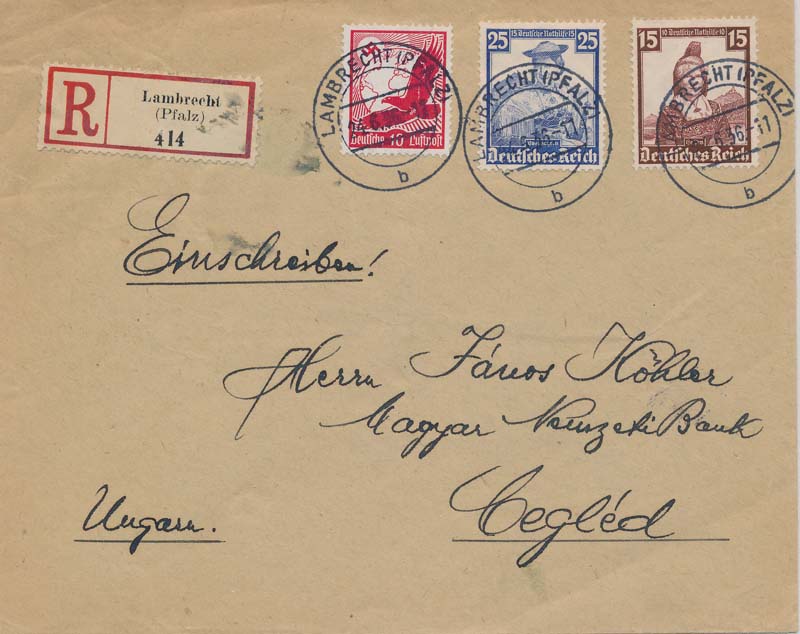 R
Lambrecht
(Pfalz)
414
Deutsche 10 Luftpost
25 15 Deutsche Nothilfe 15 25
Deutsches Reich
15 10 Deutsche Nothilfe 10 15
Deutsches Reich
LAMBRECHT (PFALZ)
b
LAMBRECHT (PFALZ)
b
LAMBRECHT (PFALZ)
b
Einschreiben!
Herrn János Köhler
Magyar Nemzeti Bank
Cegléd
Ungarn.